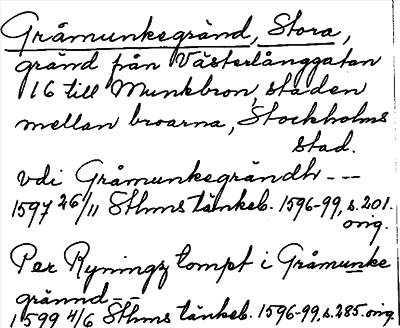 Gråmunkegränd, Stora,
gränd från Västerlånggatan
16 till Munkbron, staden
mellan broarna, Stockholms
stad.
vdi Gråmunkegrändh ---
1597 26/11 Sthms tänkeb. 1596-99, s. 201.
orig.
Per Ryningz tompt i Gråmunke
grännd --
1599 4/6 Sthms tänkeb. 1596-99, s. 285. orig